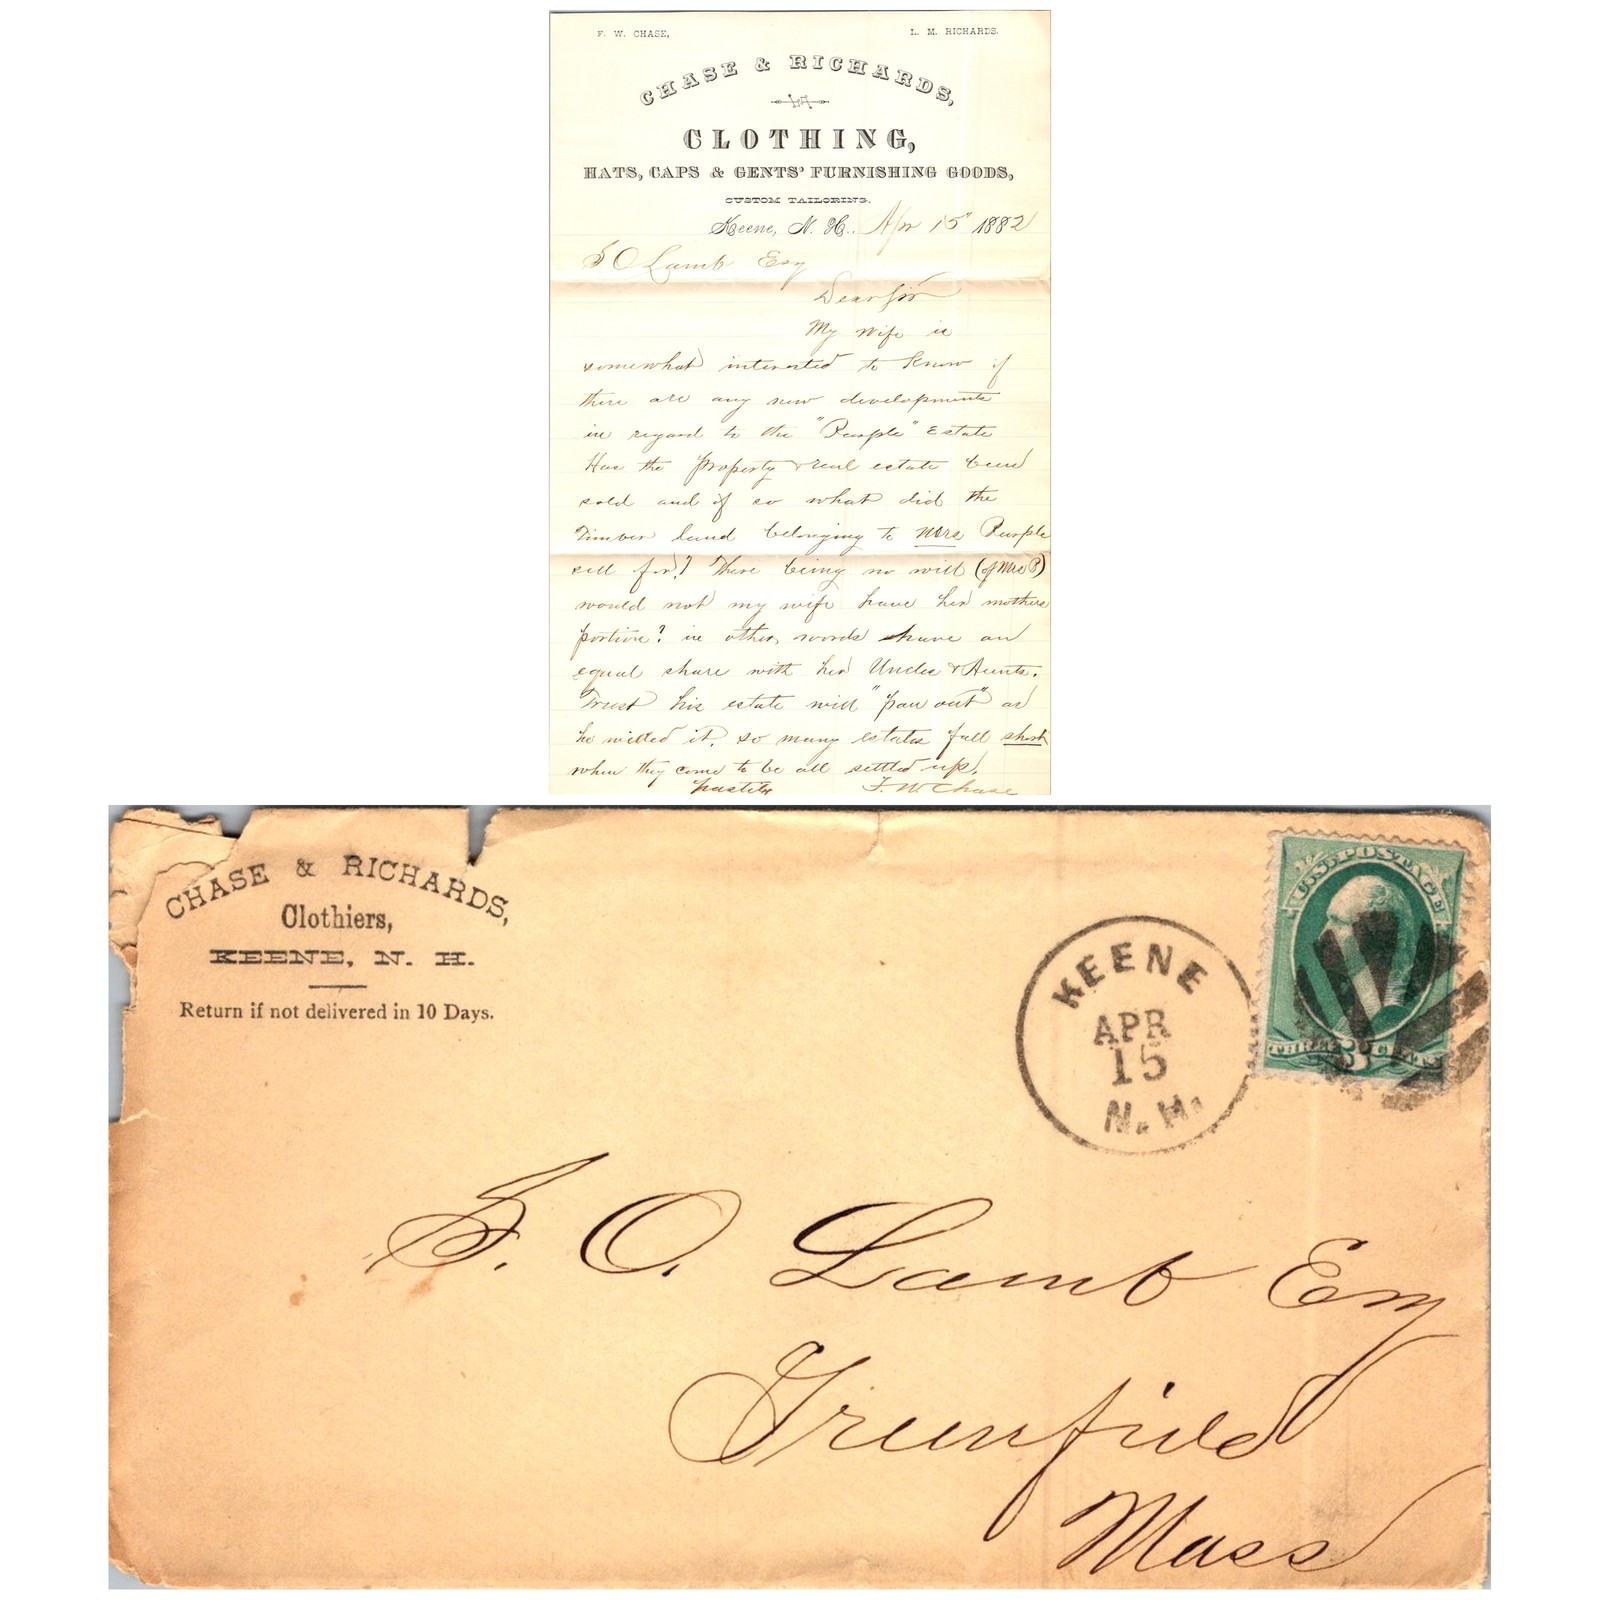 F. W. CHASE,
L. M. RICHARDS.
CHASE & RICHARDS,
CLOTHING,
HATS, CAPS & GENTS' FURNISHING GOODS,
CUSTOM TAILORING.
Keene, N. H., Apr 15" 1882
S O Lamb Esq
Dear Sir
My Wife is
somewhat interested to know if
there are any new developments
in regard to the "Purple" Estate
Has the property & real estate been
sold and if so what did the
Timber land belonging to Mrs Purple
sell for? There being no will (of Mrs P)
would not my wife have her mothers
portion? in other words share an
equal share with her Uncles & Aunts.
Trust his estate will "pan out" as
he willed it, so many estates fall short
when they come to be all settled up.
hastily F. W Chase
CHASE & RICHARDS,
Clothiers,
KEENE, N. H.
Return if not delivered in 10 Days.
KEENE
APR
15
N.H.
U.S. POSTAGE
THREE 3 CENTS
S. O. Lamb Esq
Greenfield
Mass